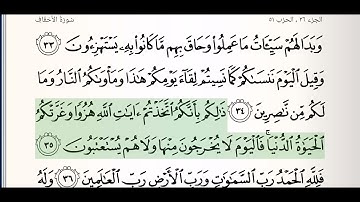 الجزء ٢٦ ، الحزب ٥١
سورة الأحقاف
وَبَدَا لَهُمْ سَيِّـَٔاتُ مَا عَمِلُوا۟ وَحَاقَ بِهِم مَّا كَانُوا۟ بِهِۦ يَسْتَهْزِءُونَ ٣٣
وَقِيلَ ٱلْيَوْمَ نَنسَىٰكُمْ كَمَا نَسِيتُمْ لِقَآءَ يَوْمِكُمْ هَٰذَا وَمَأْوَىٰكُمُ ٱلنَّارُ وَمَا
لَكُم مِّن نَّٰصِرِينَ ٣٤ ذَٰلِكُم بِأَنَّكُمُ ٱتَّخَذْتُمْ ءَايَٰتِ ٱللَّهِ هُزُوًا وَغَرَّتْكُمُ
ٱلْحَيَوٰةُ ٱلدُّنْيَا ۚ فَٱلْيَوْمَ لَا يُخْرَجُونَ مِنْهَا وَلَا هُمْ يُسْتَعْتَبُونَ ٣٥
فَلِلَّهِ ٱلْحَمْدُ رَبِّ ٱلسَّمَٰوَٰتِ وَرَبِّ ٱلْأَرْضِ رَبِّ ٱلْعَٰلَمِينَ ٣٦ وَلَهُ